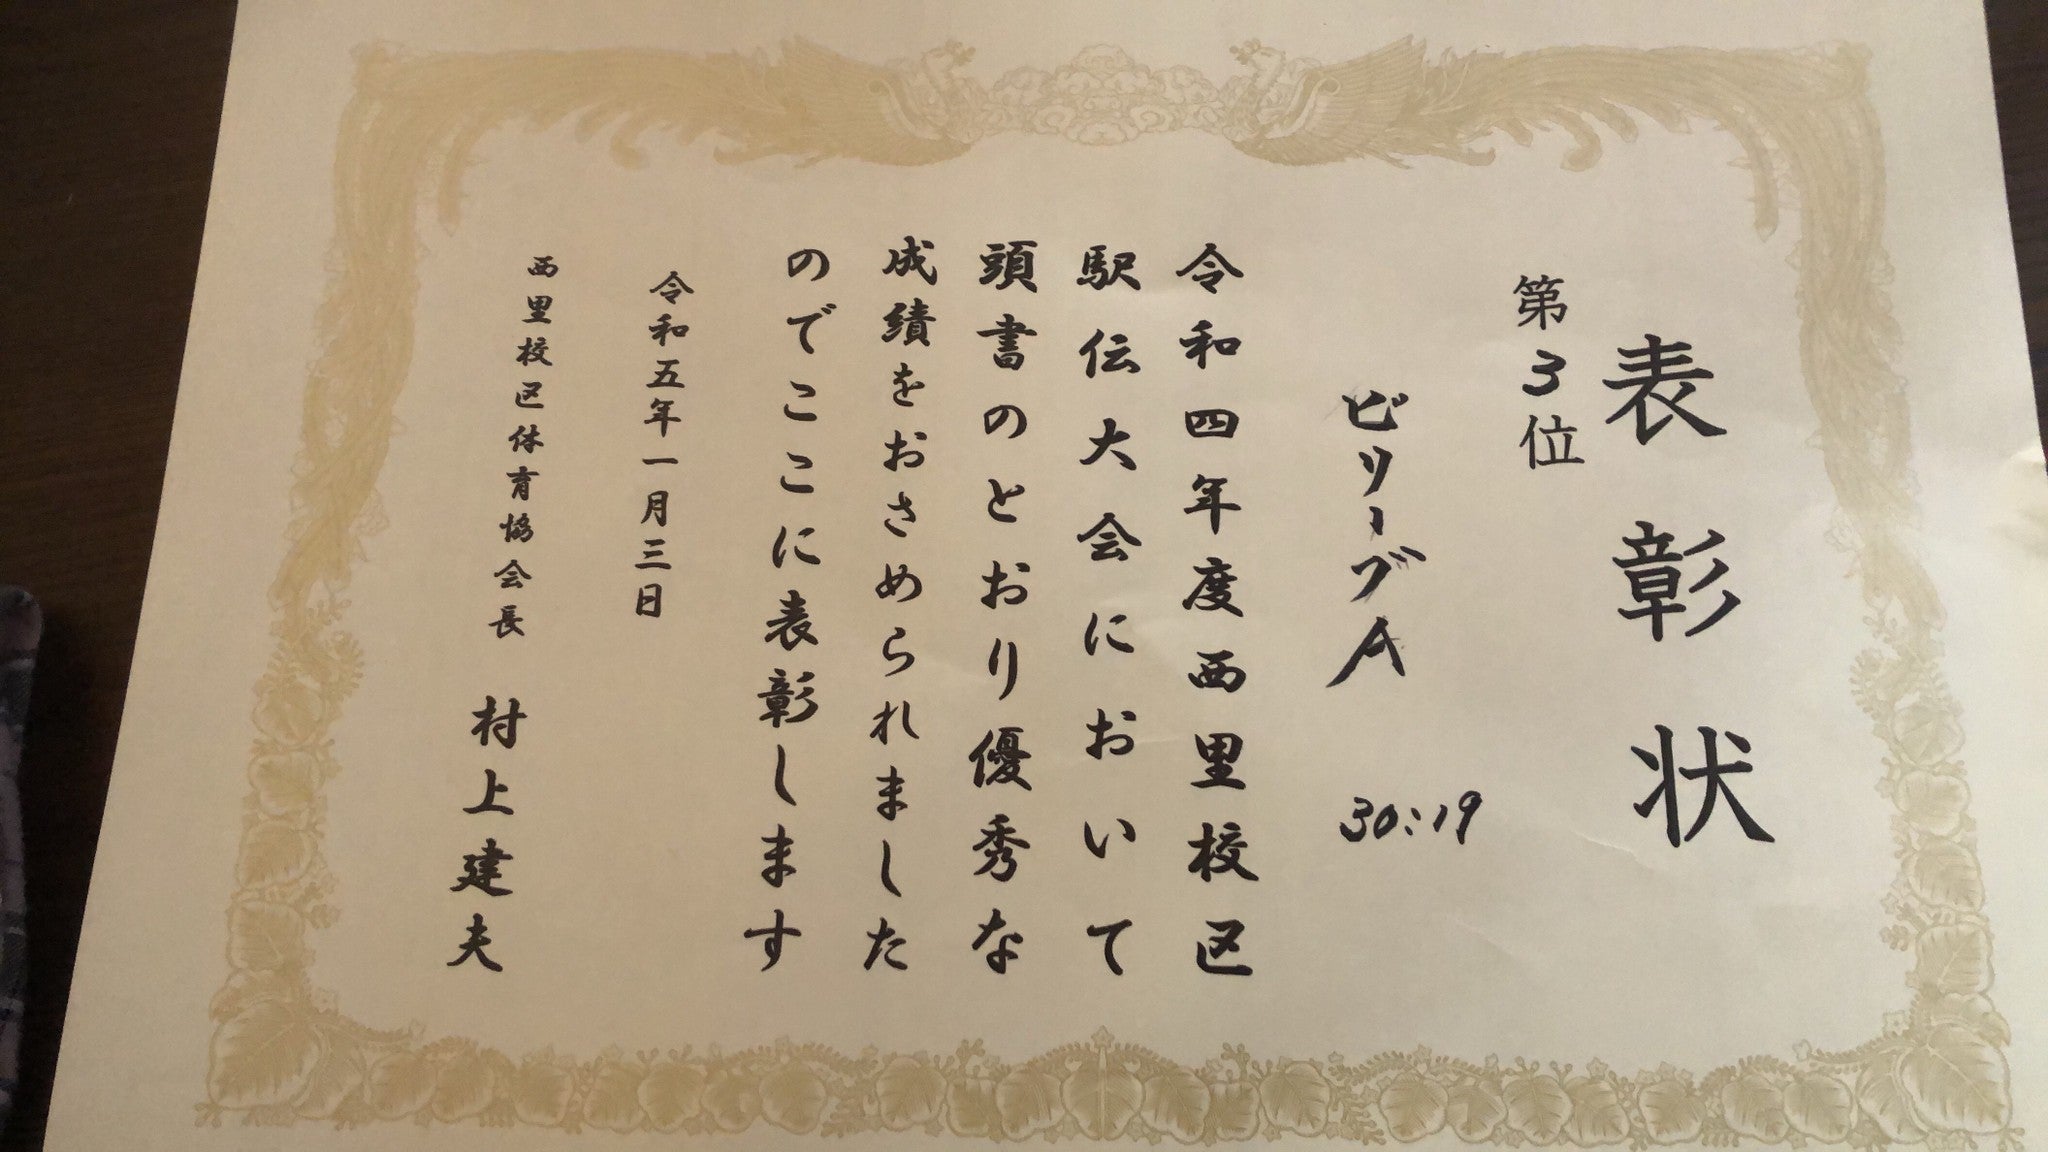 表彰状
第3位
ビリーブA 30:19
令和四年度西里校区
駅伝大会において
頭書のとおり優秀な
成績をおさめられました
のでここに表彰します
令和五年一月三日
西里校区体育協会長 村上建夫